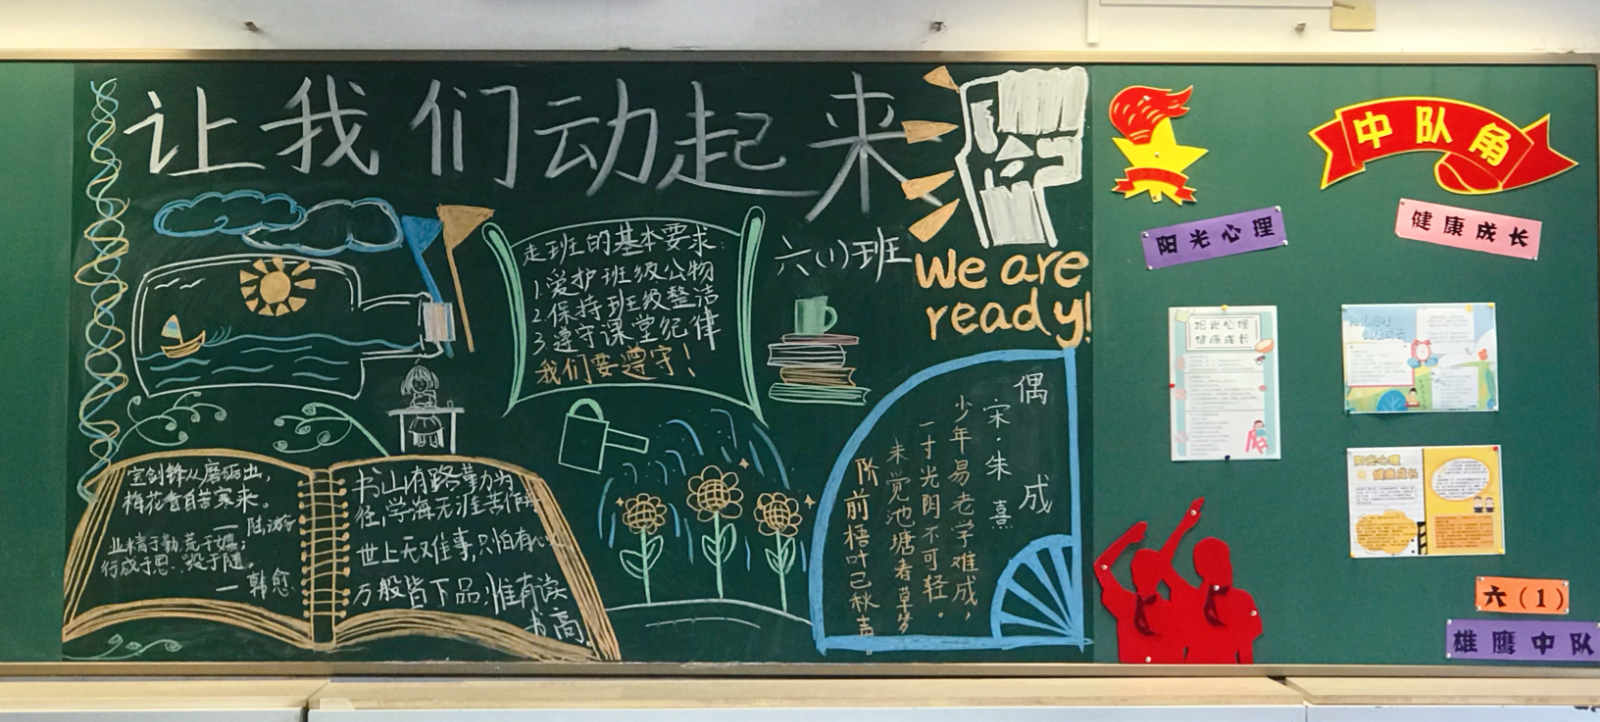 让我们动起来
六(1)班
We are
ready!
走班的基本要求:
1.爱护班级公物
2.保持班级整洁
3.遵守课堂纪律
我们要遵守!
宝剑锋从磨砺出,
梅花香自苦寒来。
——陆游
业精于勤,荒于嬉;
行成于思,毁于随。
——韩愈
书山有路勤为
径,学海无涯苦作舟
世上无难事,只怕有心人
万般皆下品,惟有读
书高。
偶成
宋·朱熹
少年易老学难成,
一寸光阴不可轻。
未觉池塘春草梦
阶前梧叶已秋声
中队角
阳光心理
健康成长
阳光心理
健康成长
阳光心理
健康成长
六(1)
雄鹰中队